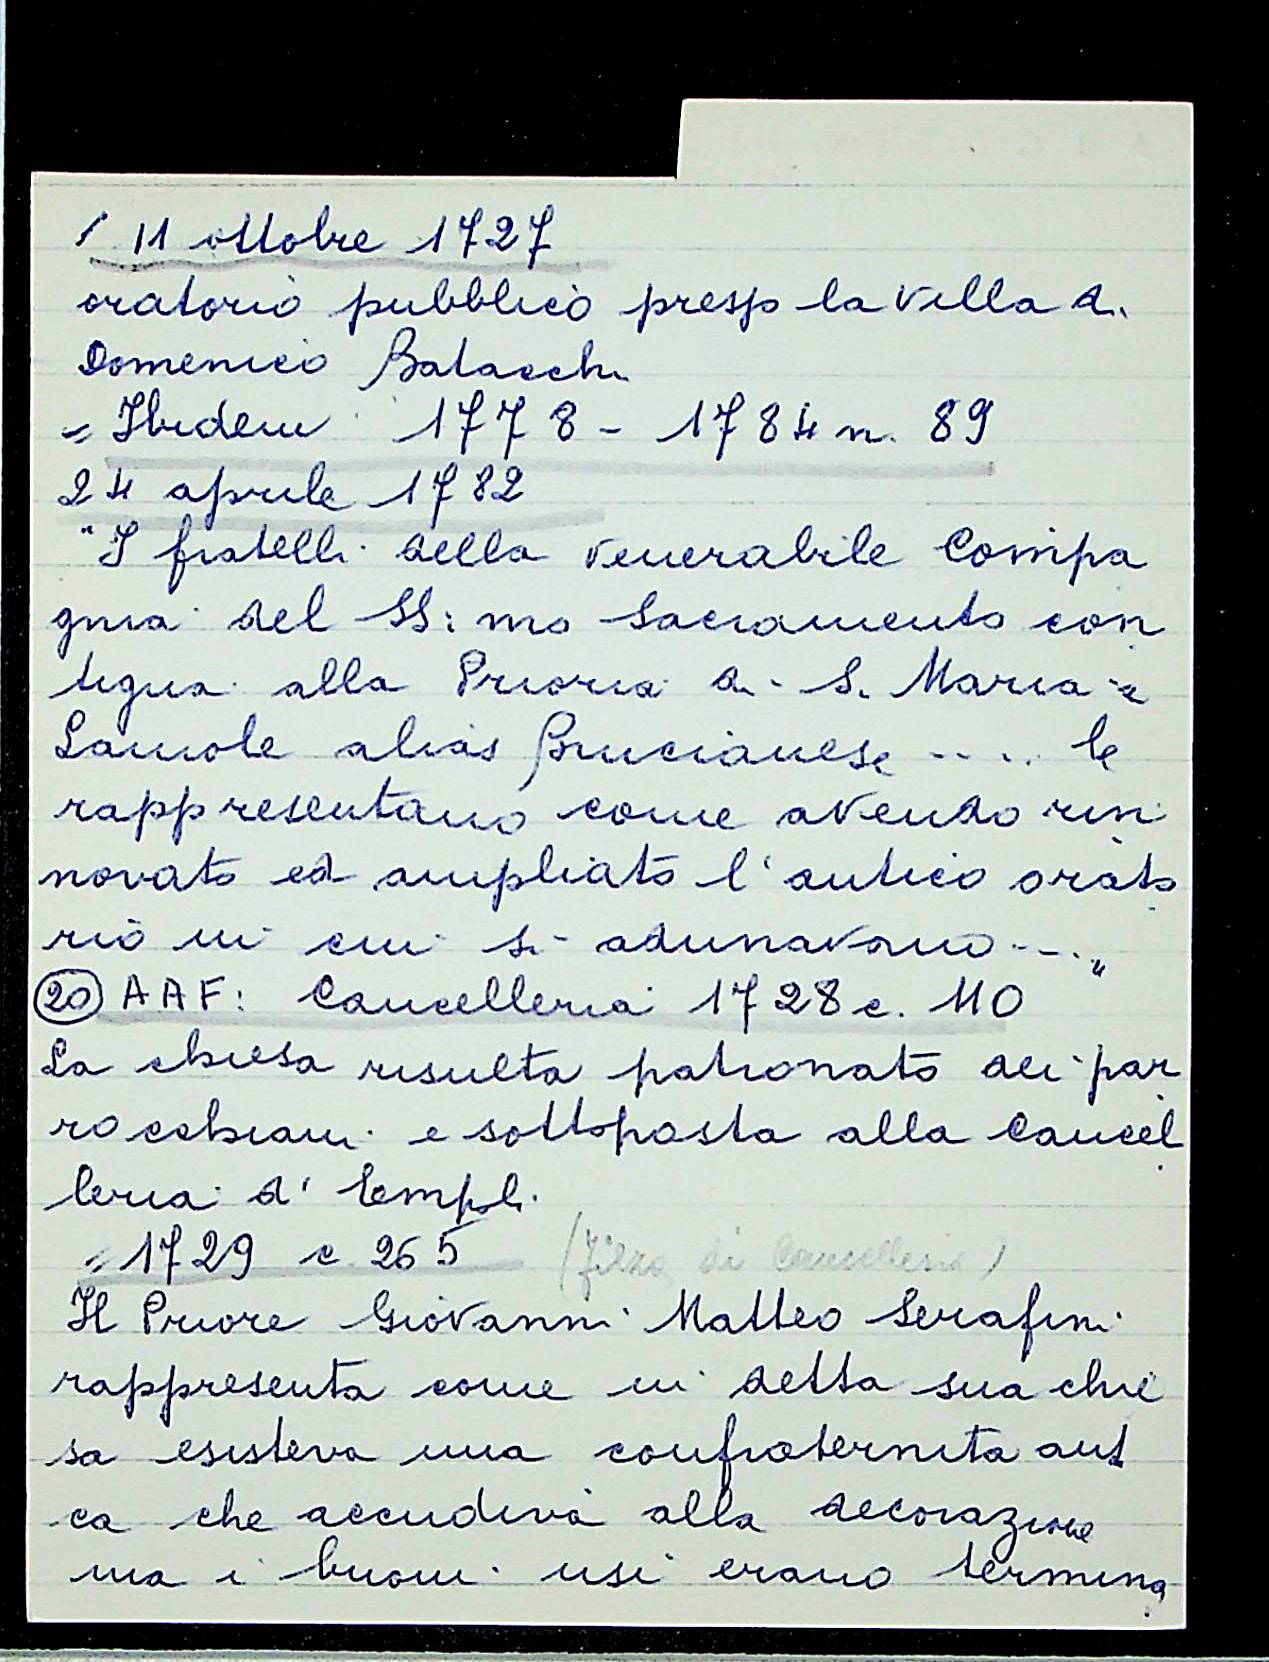 / 11 ottobre 1727
oratorio pubblico presso la villa di
Domenico Batacchi
= Ibidem 1778 - 1784 n. 89
24 aprile 1782
"I fratelli della venerabile Compa
gnia del SS:mo Sacramento con
tigua alla Prioria di S. Maria a
Lamole alias Brucianese ..... le
rappresentano come avendo rin
novato ed ampliato l'antico orato
rio in cui si adunavano ...."
(20) AAF: Cancelleria 1728 c. 110
La chiesa risulta patronato dei par
rocchiani e sottoposta alla Cancel
leria d'Empoli.
= 1729 c. 265 (filza di Cancelleria)
Il Priore Giovanni Matteo Serafini
rappresenta come in detta sua chie
sa esisteva una confraternita anti
ca che accudiva alla decorazione
ma i buoni usi erano termina